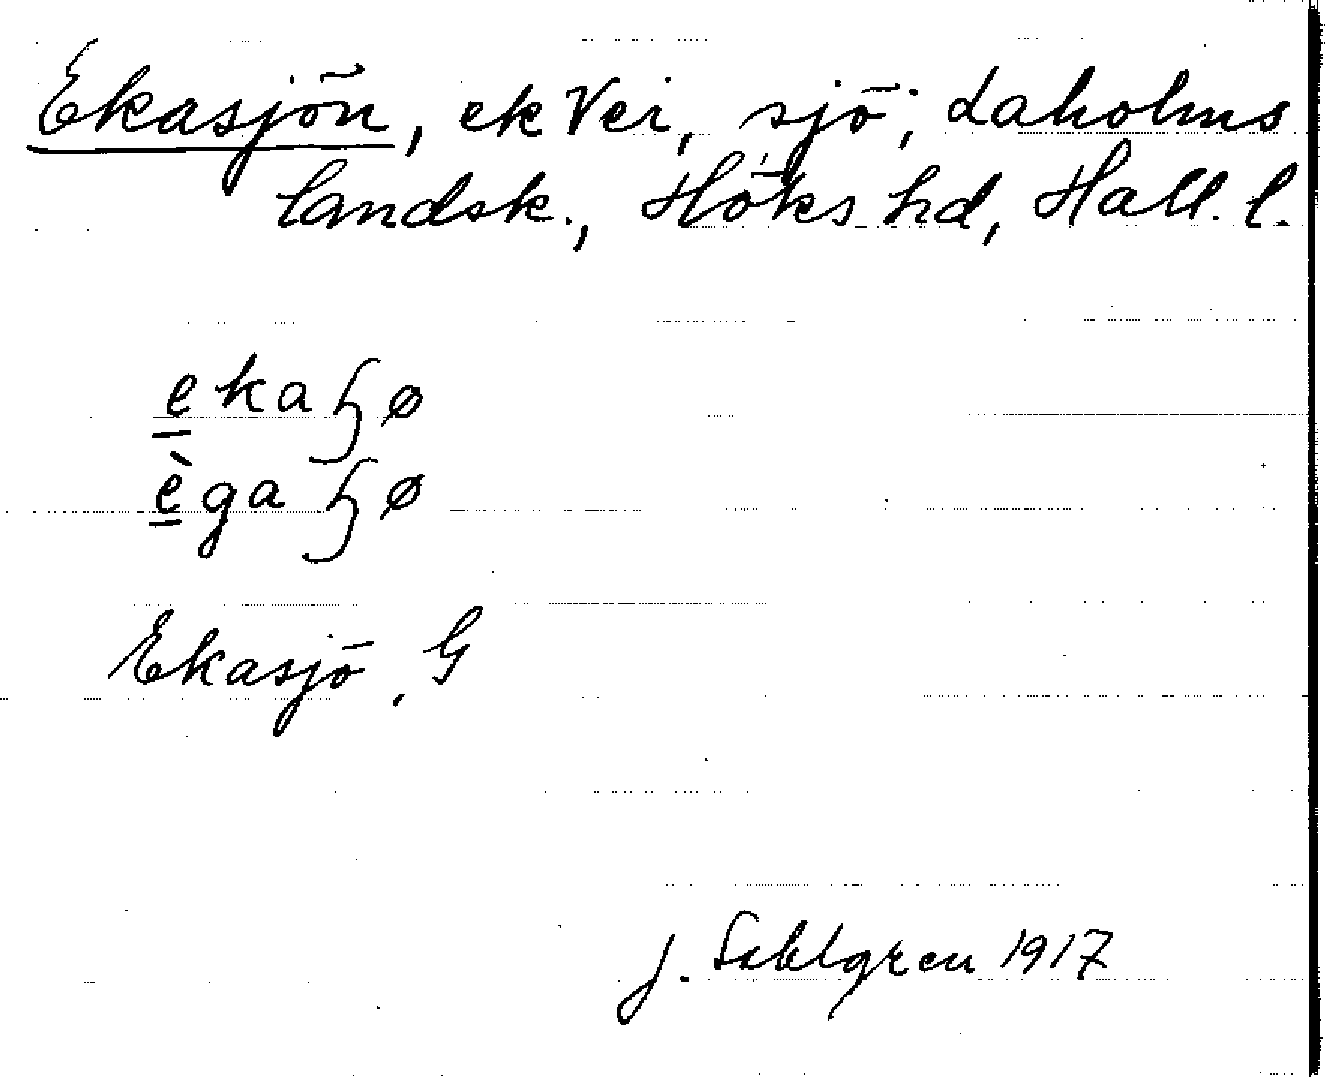 Ekasjön, ek Vei, sjö; Laholms
landsk., Höks hd, Hall. l.
ekaɧø
ègaɧø
Ekasjö, G
J. Sahlgren 1917